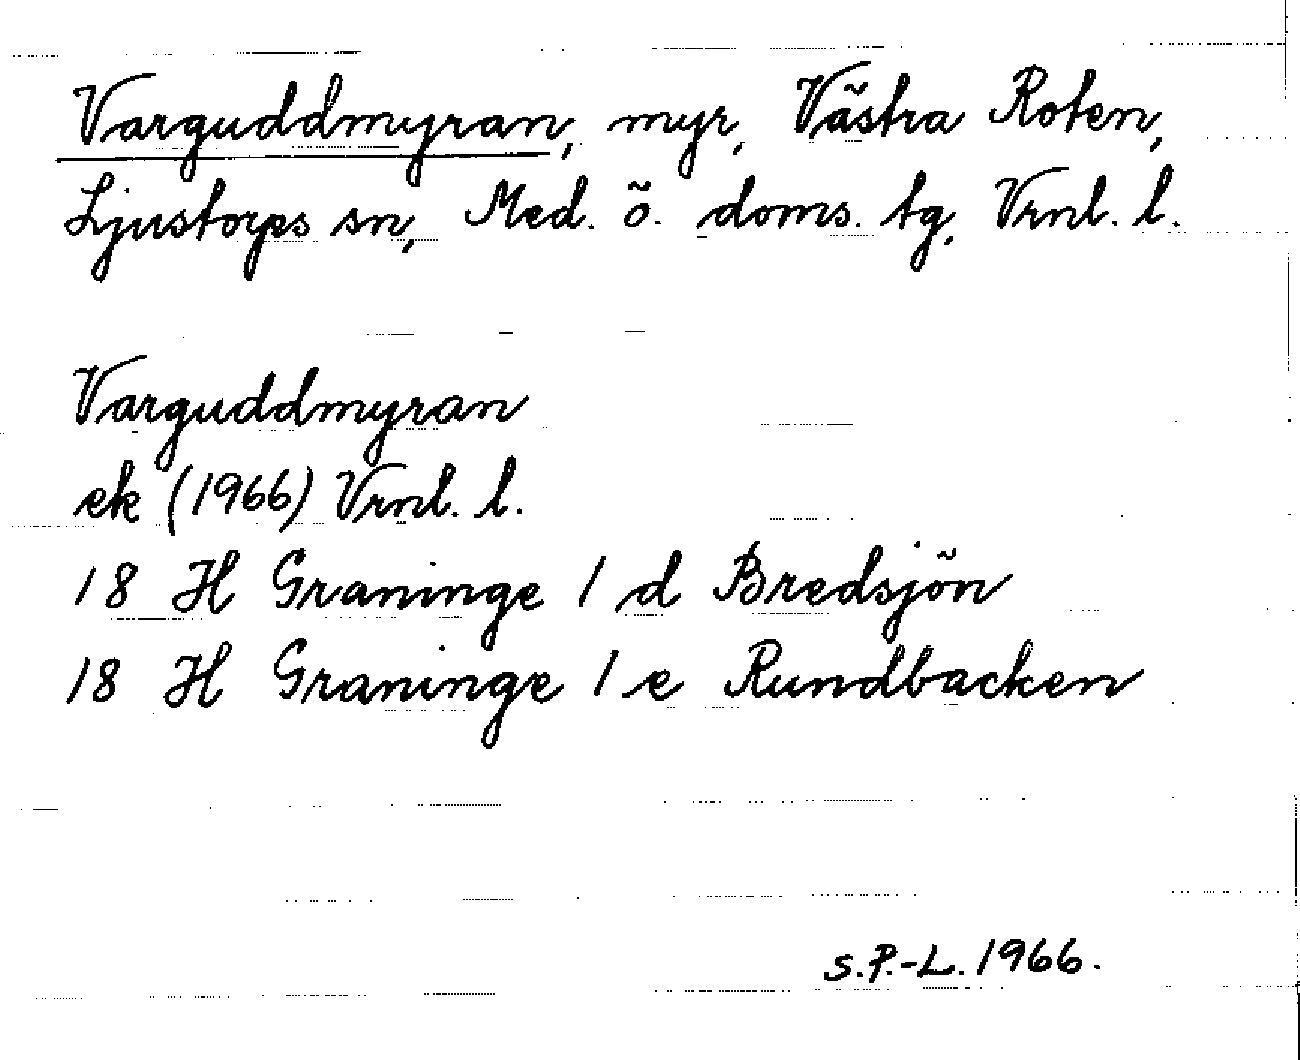 Varguddmyran, myr, Västra Roten,
Ljustorps sn, Med. ö. doms. tg, Vrnl. l.
Varguddmyran
ek (1966) Vrnl. l.
18 H Graninge 1 d Bredsjön
18 H Graninge 1 e Rundbacken
S.P.-L. 1966.